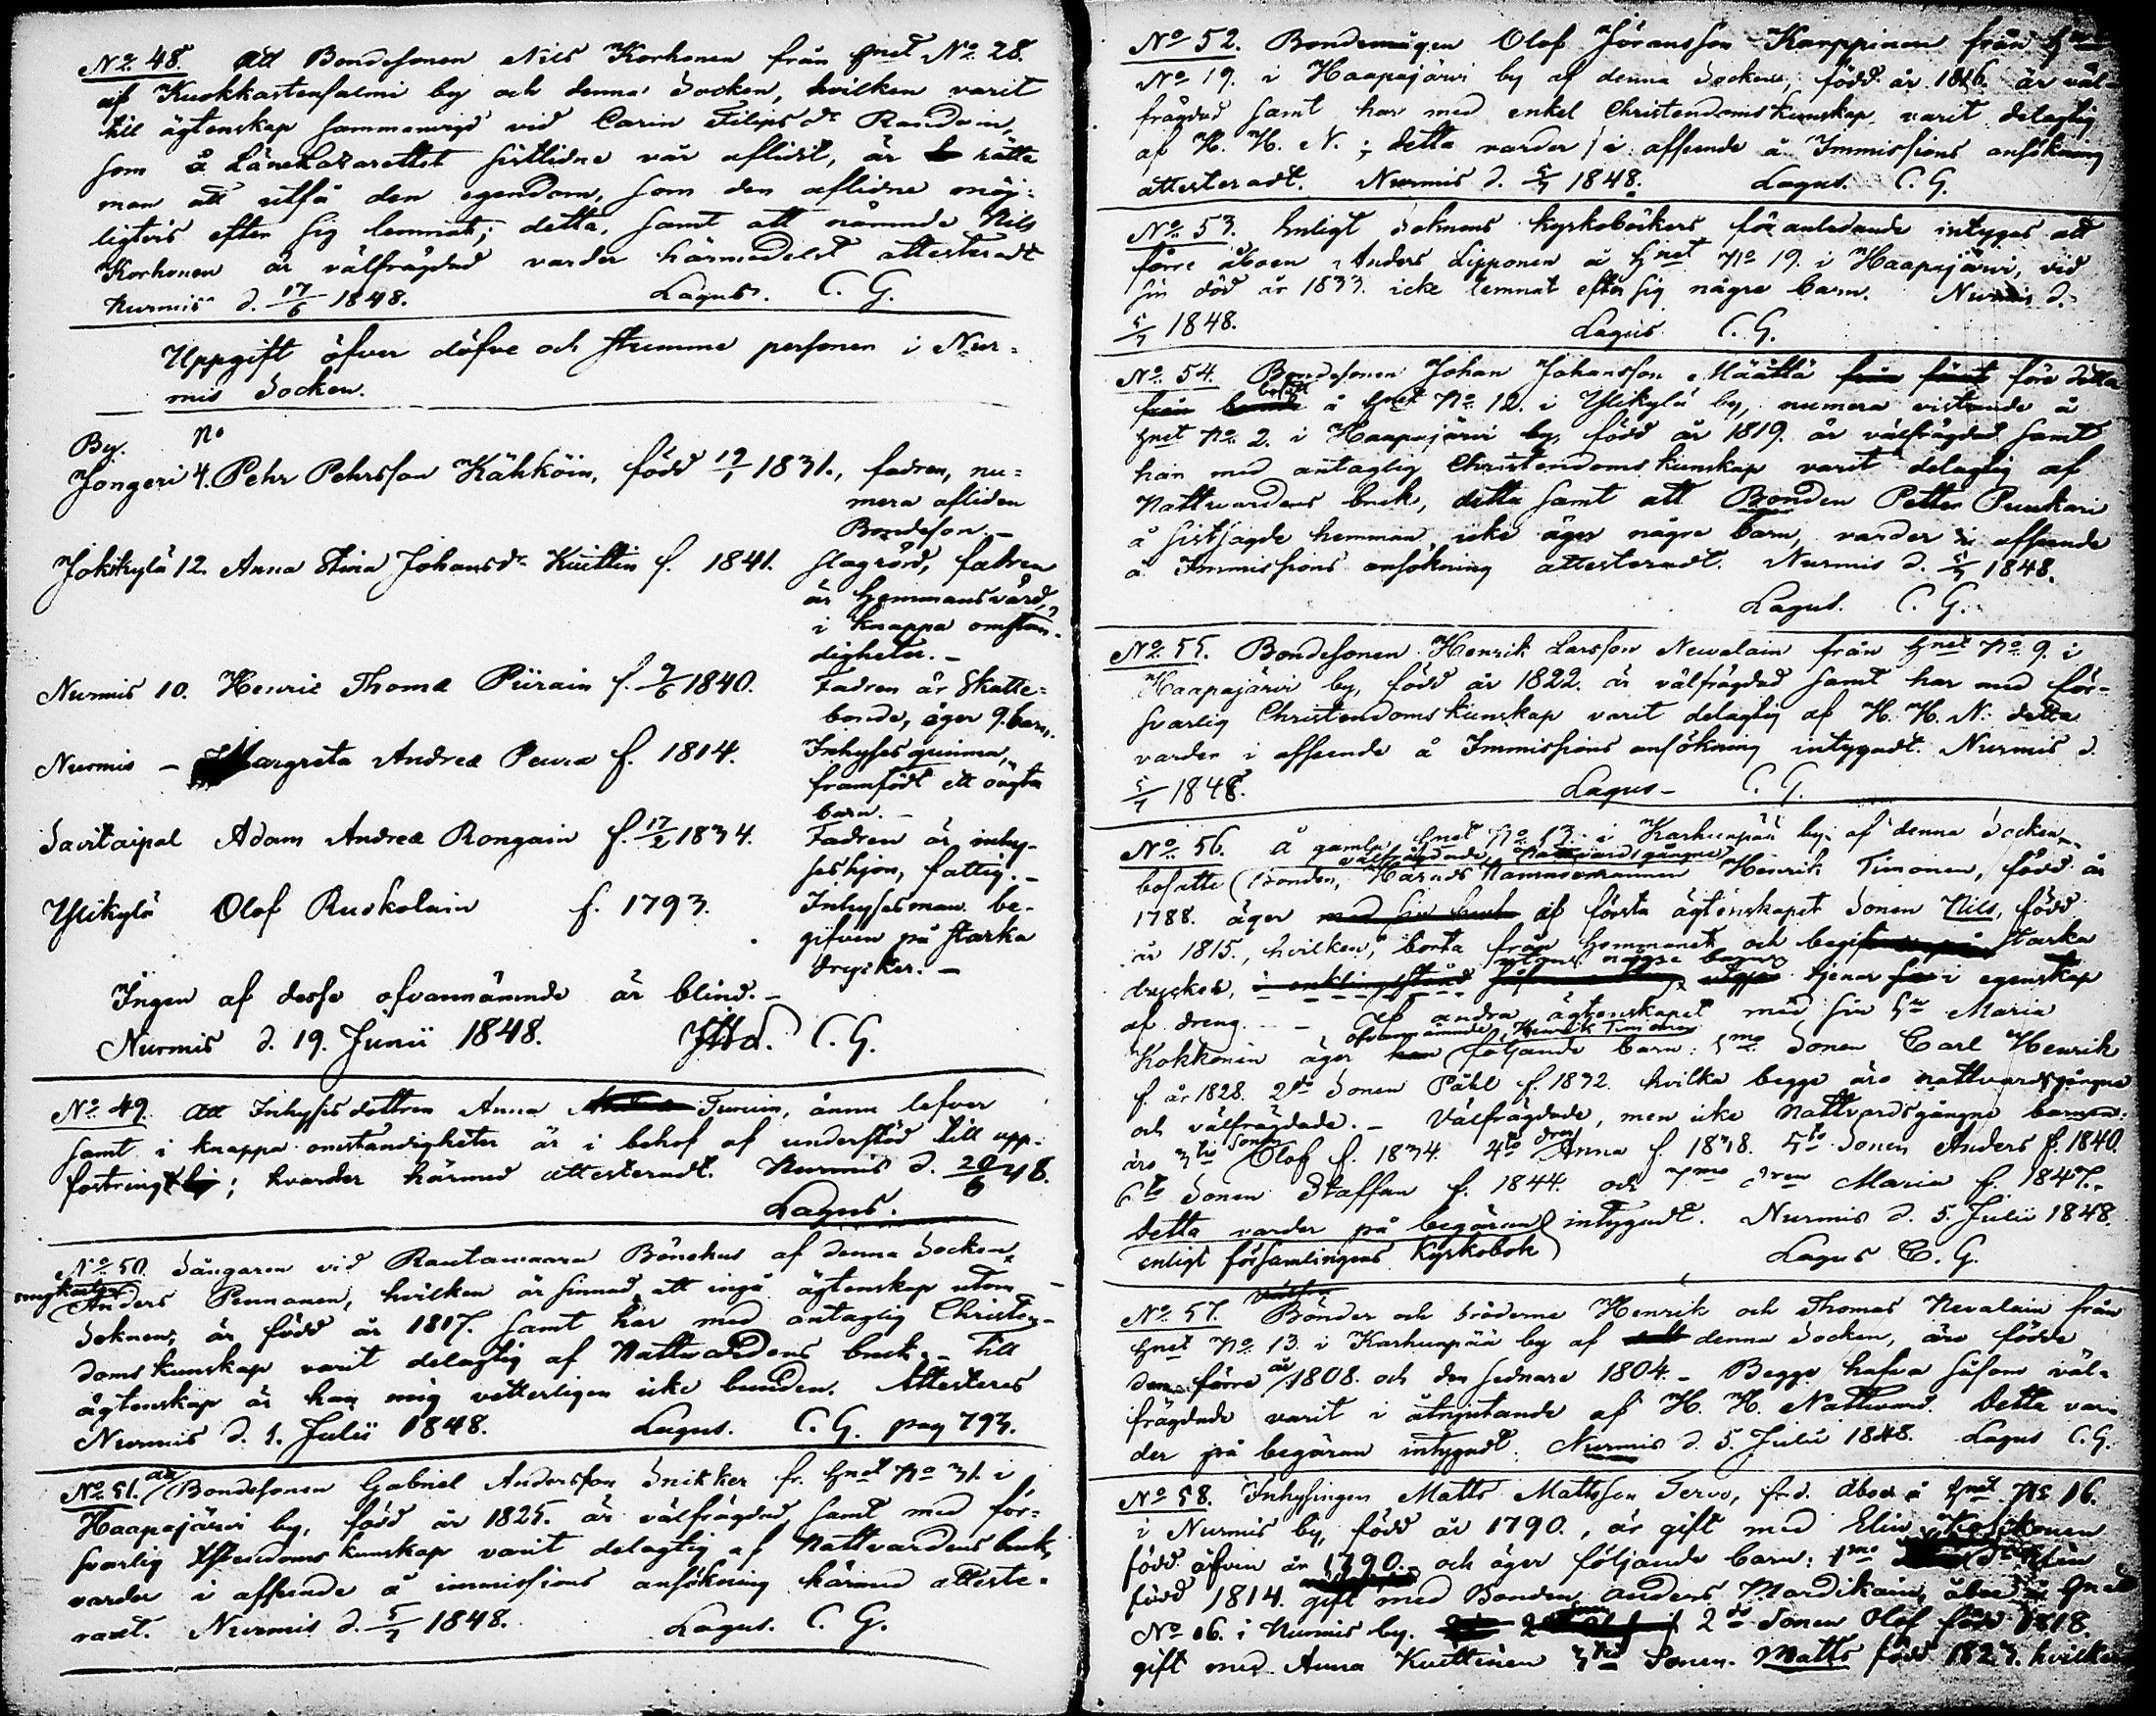 No 48. Att Bondesonen Nils Korhonen från Hmet No 28.
af Kuokkastensalmi by och denna Socken, hvilken varit
till ägtenskap sammanvigd vid Carin Filipsdr
som å Länelazarettet sistlidne vår aflidit, är rätte
man att utfå den egendom, som den aflidne möj-
ligtvis efter sig lemnat; detta, samt att nämnde Nils
Korhonen är välfrägdad varder härmedelst attesteradt
Nurmis d. 17/6 1848. Lagus. C. G.
Uppgift öfver döfve och stumme personer i Nur-
mis Socken.
By. No
Jongeri 4. Pehr Pehrsson Kähköin, född 19/1 1831., fadren, nu-
mera afliden
Bondeson. -
Jokikylä 12. Anna Stina Johansdr Kuittin f. 1841. Slagrörd, fadren
är Hemmansvärd,
i knappa omstän-
digheter. -
Nurmis 10. Henric Thomæ Piirain f. 9/6 1840. Fadren är Skatte-
bonde, äger 9. barn.
Nurmis - Margreta Andreæ Peura f. 1814. Inhyses qvinna,
framfödt ett oägta
barn. -
Savitaipal Adam Andreæ Rongain f. 17/2 1834. Fadren är inhy-
seshjon, fattig. -
Ylikylä Olof Ruskolain f. 1793. Inhysesman be-
gifven på starka
drycker. -
Ingen af desse ofvannämnde är blind. -
Nurmis d. 19. Junii 1848. C. G.
No 49. Att Inhysesdottren Anna Turuin, ännu lefver
samt i knappa omständigheter är i behof af understöd till upp-
fostring; hvarder härmed attesteradt. Nurmis d. 20/6 48.
Lagus.
No 50. Sångaren vid Rautavaara Bönehus af denna Socken,
ungkarlen Anders Pennanen, hvilken är sinnad att ingå ägtenskap utom
Soknen, är född år 1817. samt har med antaglig Christen-
doms kunskap varit delagtig af Nattvardens bruk. - Till
ägtenskap är han mig vetterligen icke bunden. Attesteras
Nurmis d. 1. Julii 1848. Lagus. C. G. pag 793.
No 51. att Bondesonen Gabriel Andersson Snikker fr. Hmet No 31. i
Haapajärvi by, född år 1825. är välfrägdad samt med för-
svarlig Xstendoms kunskap varit delagtig af Nattvardens bruk,
varder i afseende å immissions ansökning härmed atteste-
radt. Nurmis d. 5/7 1848. Lagus. C. G.
No 52. Bondemågen Olof Jöransson Karppinen från
No 19. i Haapajärvi by af denna Socken, född år 1816. är väl-
frägdad samt har med enkel Christendoms kunskap varit delagtig
af H. H. N.; detta varder i afseende å Immissions ansökning
attesteradt. Nurmis d. 5/7 1848. Lagus. C. G.
No 53. Enligt Soknens kyrkoböckers föranledande intygas att
förre åboen Anders Lipponen å Hmet No 19. i Haapajärvi, vid
sin död år 1833. icke lemnat efter sig några barn. Nurmis d.
5/7 1848. Lagus C. G.
No 54. Bondesonen Johan Johansson Määttä före detta
bosatt å Hmet No 12. i Ylikylä by, numera vistande å
Hmet No 2. i Haapajärvi by, född år 1819. är välfrägdad samt
har med antaglig Christendoms kunskap varit delagtig af
Nattvardens bruk, detta samt att Bonden Petter Puukari
å sistsagde hemman icke äger några barn, varder i afseende
å Immissions ansökning attesteradt. Nurmis d. 5/7 1848.
Lagus. C. G.
No 55. Bondesonen Henrik Larsson Nevalain från Hmet No 9. i
Haapajärvi by, född år 1822. är välfrägdad samt har med för-
svarlig Christendoms kunskap varit delagtig af H. H. N. detta
varder i afseende å Immissions ansökning intygadt. Nurmis d.
5/7 1848. Lagus - C. G.
No 56. Å gamla Hmet No 13. i Karhunpää by af denna Socken
välfrägdade, Nattvardsgångne
bosatte Bonden, Härads Nämndemannen Henrik Timonen, född år
1788. äger af första ägtenskapet Sonen Nils, född
år 1815., hvilken, borta från Hemmanet och starka
drycker, tjenar i egenskap
af dreng. - Af andra ägtenskapet med sin Hu Maria
ofvannämnde Henrik Timonen
Kokkonin äger följande barn: 1mo Sonen Carl Henrik
f. år 1828. 2do Sonen Påhl f. 1832. hvilka begge äro nattvardsgångne
och välfrägdade. - Välfrägdade, men icke Nattvardsgångne
äro 3tio Sonen Olof f. 1834. 4to dren Anna f. 1838. 5to Sonen Anders f. 1840.
6to Sonen Staffan f. 1844. och 7mo dren Maria f. 1847.
Detta varder på begäran intygadt. Nurmis d. 5. Julii 1848
enligt församlingens Kyrkobok Lagus C. G.
No 57. Bönder och bröderne Henrik och Thomas Nevalain från
Hmet No 13. i Karhunpää by af denna Socken, äro födde
den förre år 1808. och den sednare 1804. - Begge hafva såsom väl-
frägdade varit i åtnjutande af H. H. Nattvard. Detta var-
der på begäran intygadt. Nurmis d. 5. Julii 1848. Lagus C. G.
No 58. Inhysingen Matts Mattsson Tervo, f. d. åboe å Hmet No 16.
i Nurmis by, född år 1790., är gift med Elin
född äfven år 1790. och äger följande barn: 1mo
född 1814. gift med Bonden Anders Mardikain, åboe å Hmet
No 16. i Nurmis by. 2do Sonen Olof född 1818.
gift med Anna Kuittinen 3tio Sonen Matts född 1823. hvilken